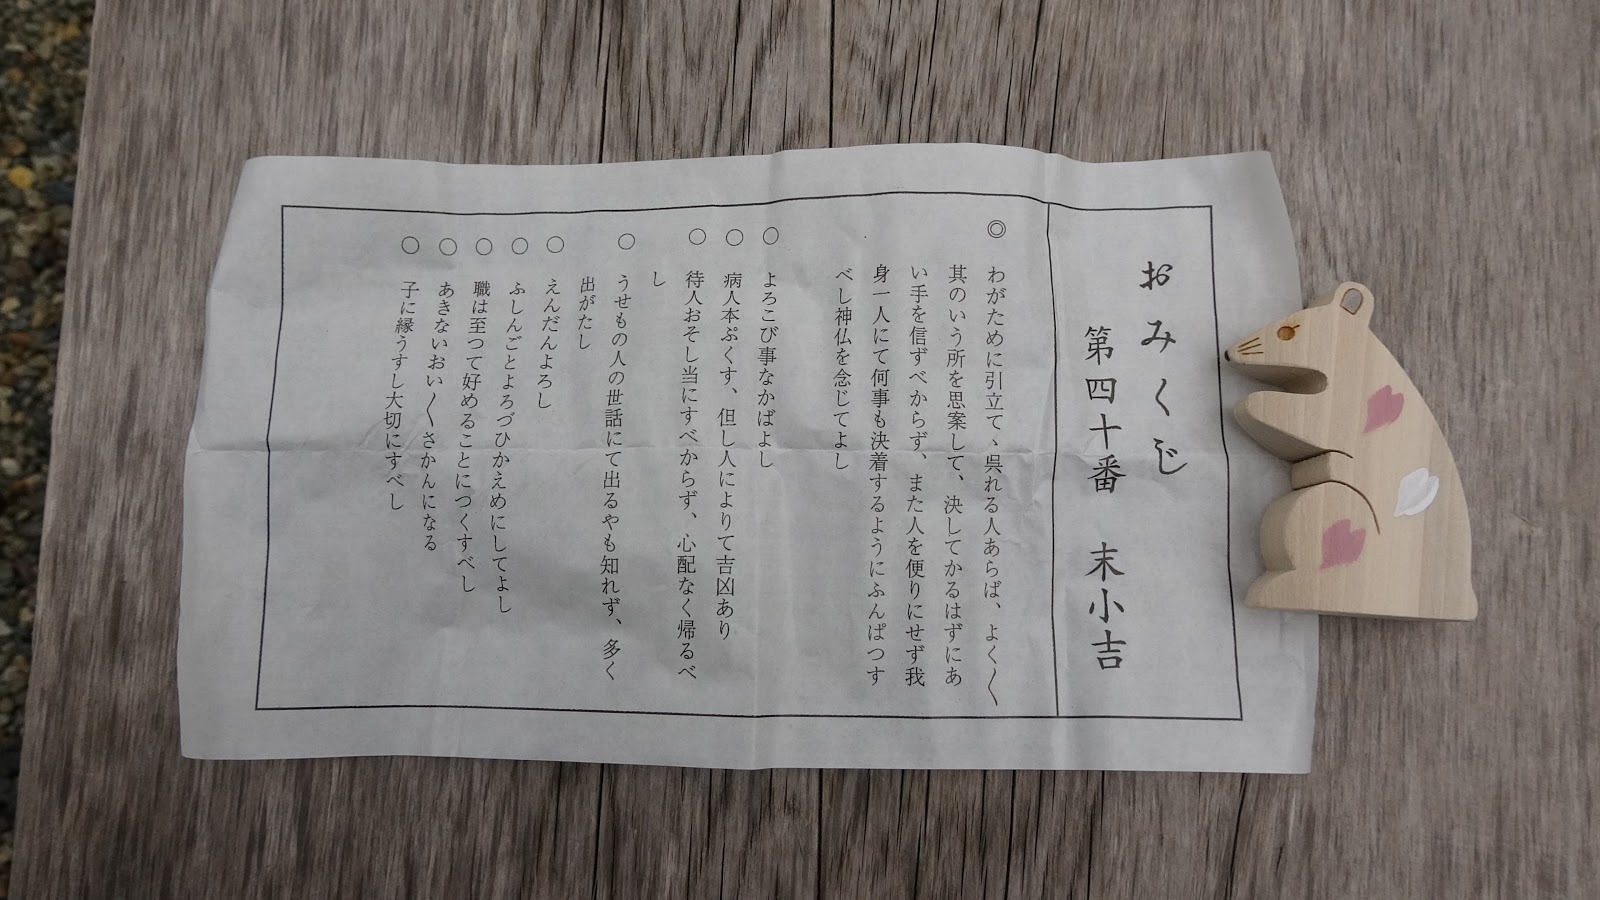 おみくじ
第四十番　末小吉
◎ わがために引立てゝ呉れる人あらば、よく〱
其のいう所を思案して、決してかるはずにあ
い手を信ずべからず、また人を便りにせず我
身一人にて何事も決着するようにふんぱつす
べし神仏を念じてよし
○ よろこび事なかばよし
○ 病人本ぷくす、但し人によりて吉凶あり
○ 待人おそし当にすべからず、心配なく帰るべ
し
○ うせもの人の世話にて出るやも知れず、多く
出がたし
○ えんだんよろし
○ ふしんごとよろづひかえめにしてよし
○ 職は至つて好めることにつくすべし
○ あきないおい〱さかんになる
○ 子に縁うすし大切にすべし